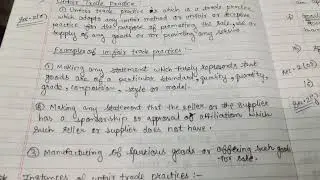 Unfair Trade Practice
① Unfair trade practice is which is a trade practice
which adopts any unfair method or unfair or deceptive
practice for the purpose of promoting the sale, use or
supply of any goods or for providing any service
Examples of unfair trade practices :-
① Making any statement which falsely represents that
goods are of a particular standard, quality, quantity,
grade, composition, style or model.
② Making any statement that the seller or the supplier
has a sponsorship or approval or affiliations which
such seller or supplier does not have.
③ Manufacturing of spurious goods or offering such goods
for sale.
Instances of unfair trade practices :-